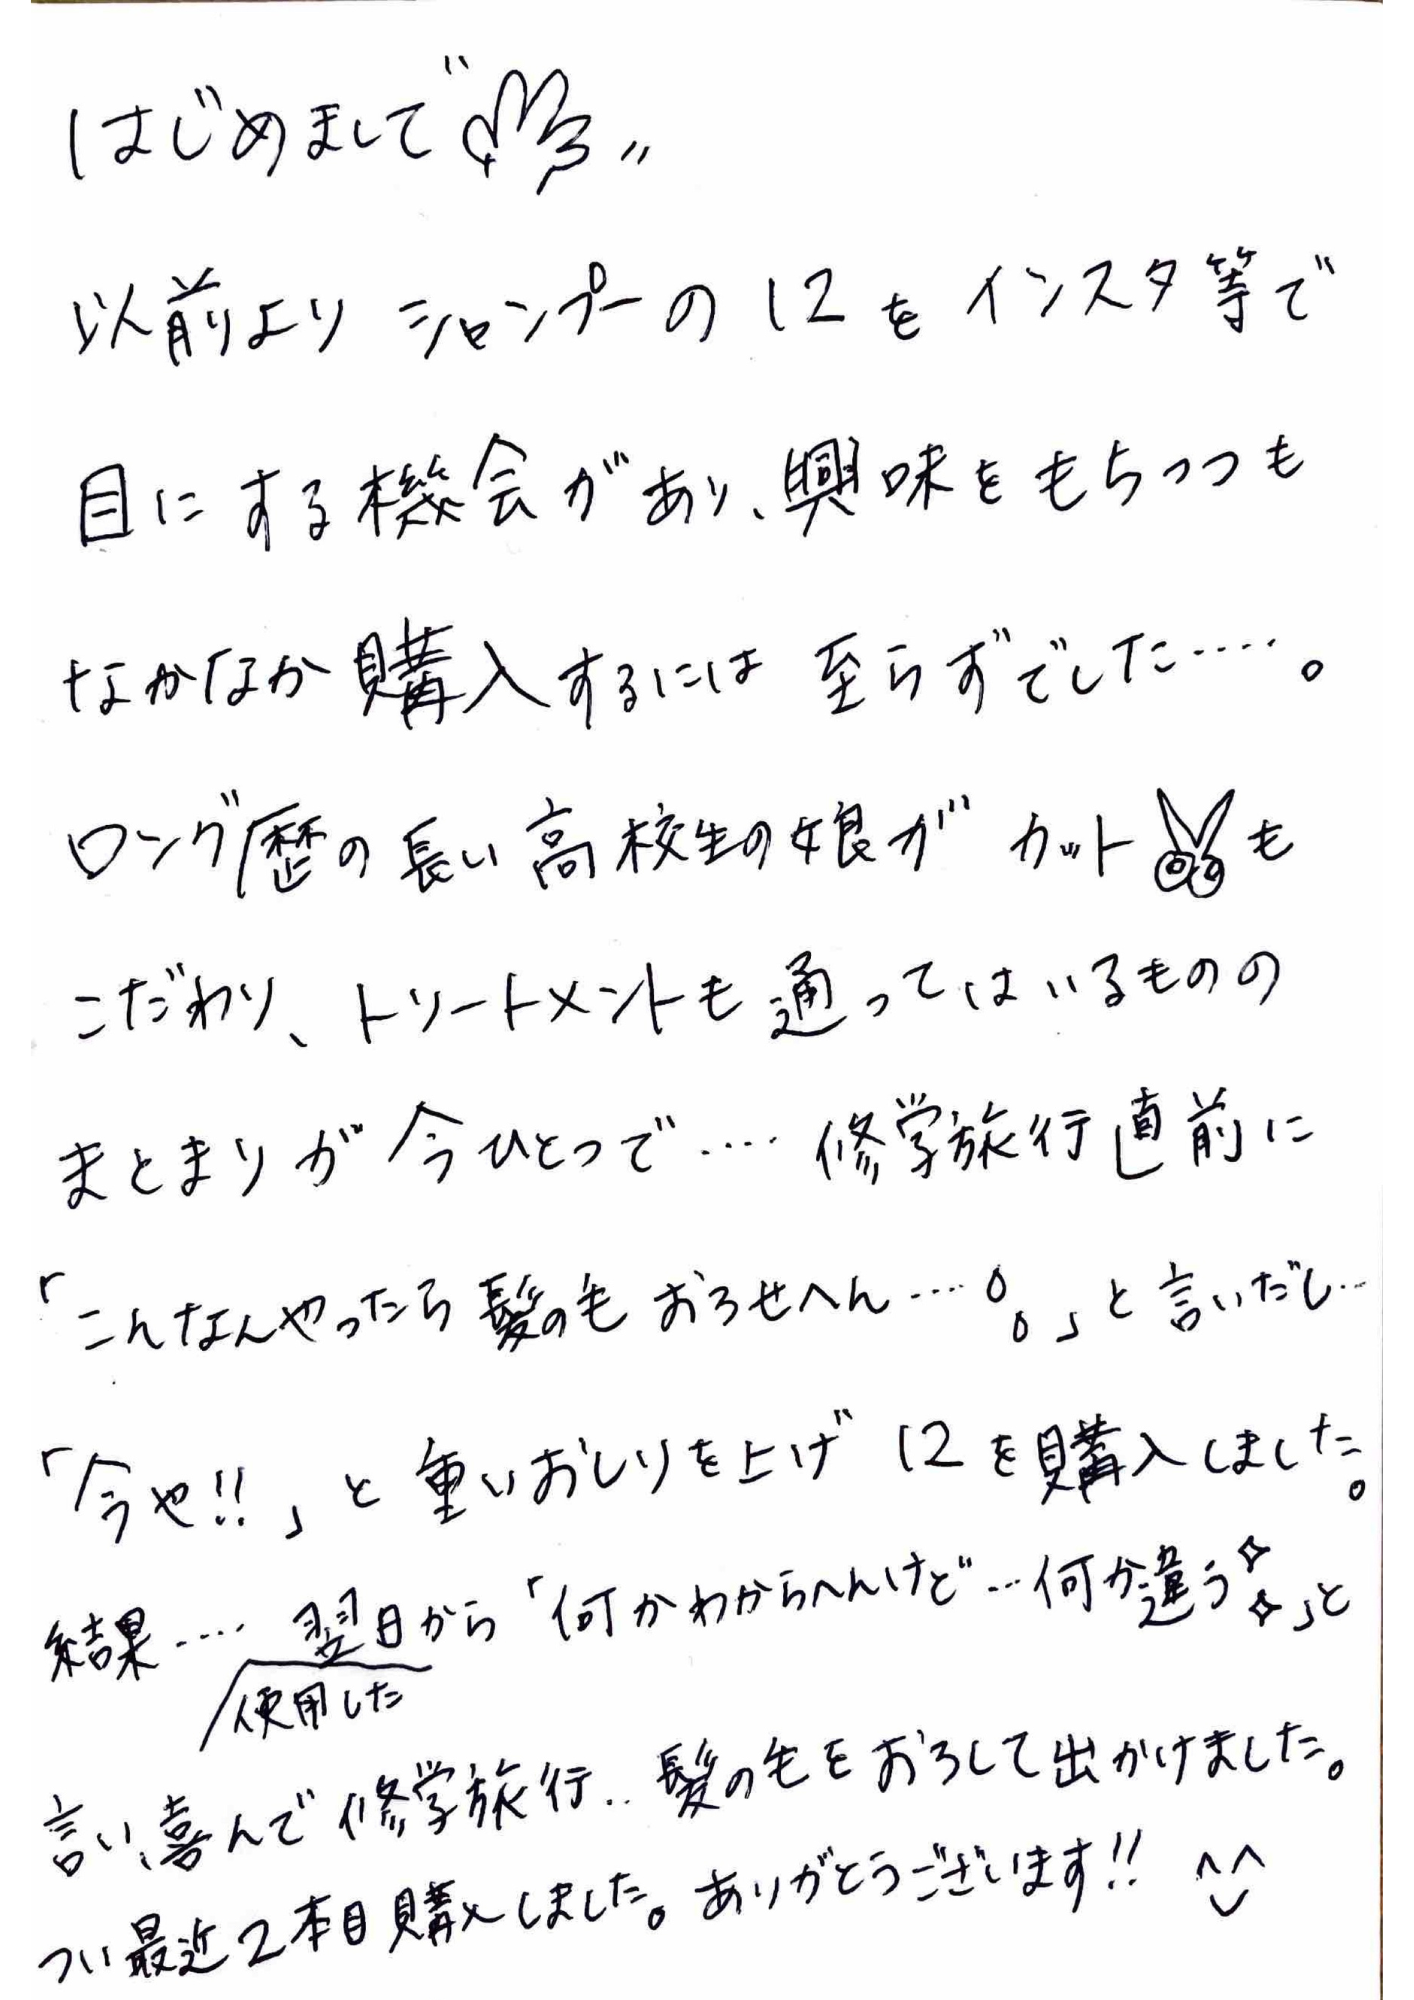 はじめまして
以前よりシャンプーの12をインスタ等で
目にする機会があり、興味をもちつつも
なかなか購入するには至らずでした‥‥。
ロング歴の長い高校生の娘がカットも
こだわり、トリートメントも通ってはいるものの
まとまりが今ひとつで‥‥修学旅行直前に
「こんなんやったら髪の毛おろせへん‥‥。」と言いだし‥
「今や!!」と重いおしりを上げ12を購入しました。
結果‥‥翌日から「何かわからへんけど‥何か違う」と
使用した
言い、喜んで修学旅行‥髪の毛をおろして出かけました。
つい最近2本目購入しました。ありがとうございます!! ^^